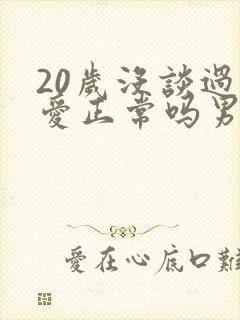 20歲沒談過
愛正常吗男
愛在心底口難